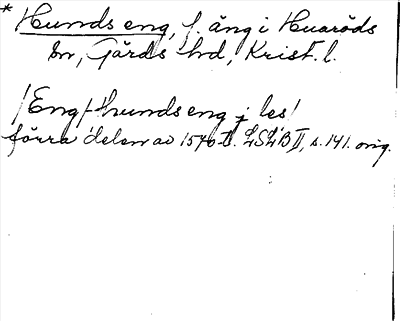 * Hunds eng, f. äng i Huaröds
sn, Gärds hd, Krist. l.
/Eng/ Hunds eng j les/
förra delen av 1546-t. LSLB II, s. 141. orig.